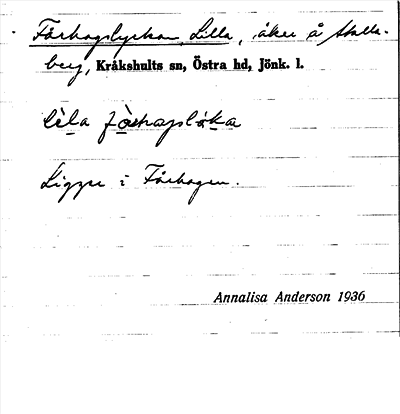 Fårhagslyckan, Lilla, åker å Skulla-
berg, Kråkshults sn, Östra hd, Jönk. l.
Ligger i Fårhagen.
Annalisa Anderson 1936